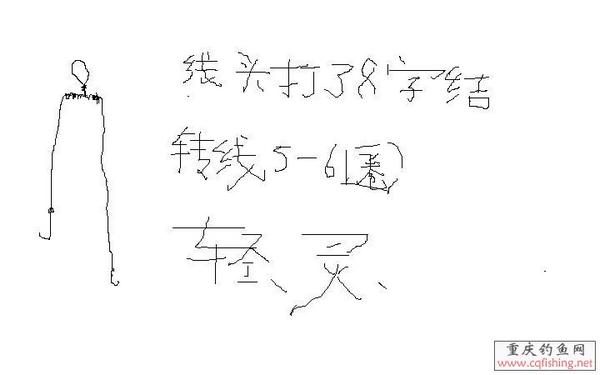 线头打了8字结
转线5-6圈
轻、灵、
重庆钓鱼网
www.cqfishing.net